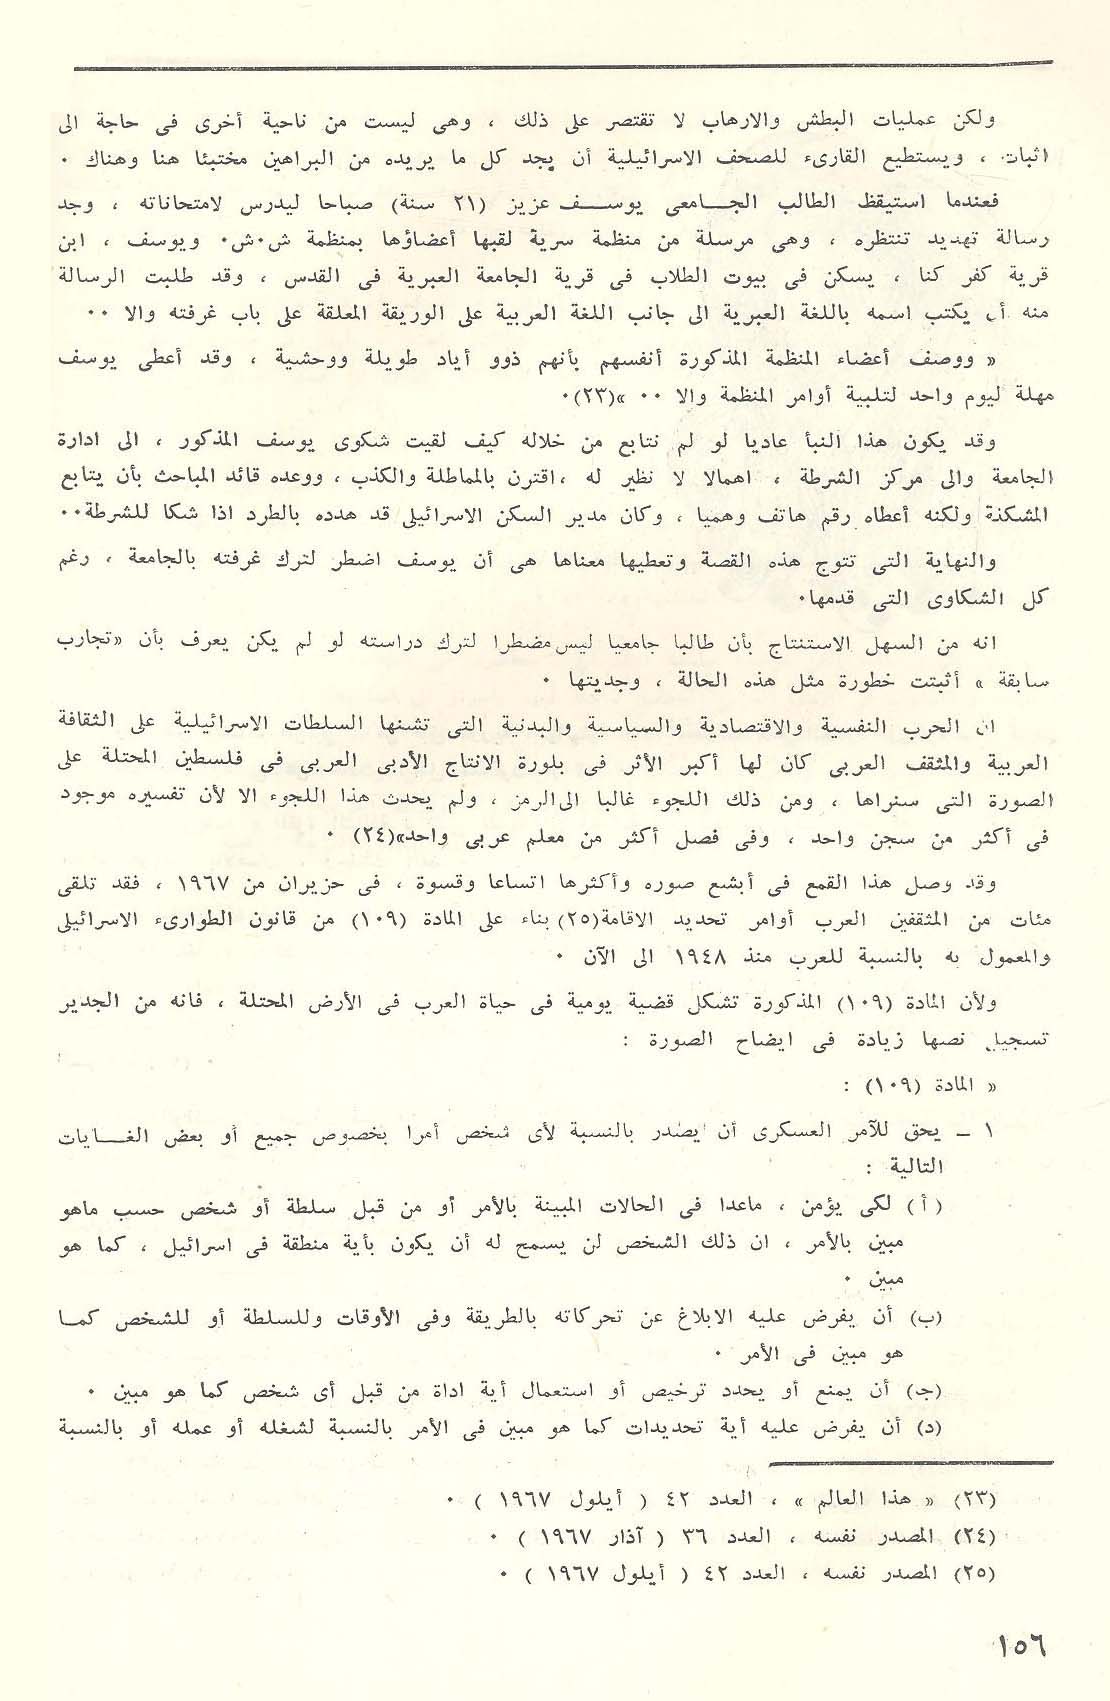 ولكن عمليات البطش والارهاب لا تقتصر على ذلك ، وهى ليست من ناحية أخرى فى حاجة الى
اثبات ، ويستطيع القارىء للصحف الاسرائيلية أن يجد كل ما يريده من البراهين مختبئا هنا وهناك ٠
فعندما استيقظ الطالب الجـــامعى يوســـف عزيز (٢١ سنة) صباحا ليدرس لامتحاناته ، وجد
رسالة تهديد تنتظره ، وهى مرسلة من منظمة سرية لقبها أعضاؤها بمنظمة ش٠ش٠ ويوسف ، ابن
قرية كفر كنا ، يسكن فى بيوت الطلاب فى قرية الجامعة العبرية فى القدس ، وقد طلبت الرسالة
منه أن يكتب اسمه باللغة العبرية الى جانب اللغة العربية على الوريقة المعلقة على باب غرفته والا ٠٠
« ووصف أعضاء المنظمة المذكورة أنفسهم بأنهم ذوو أياد طويلة ووحشية ، وقد أعطى يوسف
مهلة ليوم واحد لتلبية أوامر المنظمة والا ٠٠ »(٢٣)٠
وقد يكون هذا النبأ عاديا لو لم نتابع من خلاله كيف لقيت شكوى يوسف المذكور ، الى ادارة
الجامعة والى مركز الشرطة ، اهمالا لا نظير له ، اقترن بالمماطلة والكذب ، ووعده قائد المباحث بأن يتابع
المشكلة ولكنه أعطاه رقم هاتف وهميا ، وكان مدير السكن الاسرائيلى قد هدده بالطرد اذا شكا للشرطة٠٠
والنهاية التى تتوج هذه القصة وتعطيها معناها هى أن يوسف اضطر لترك غرفته بالجامعة ، رغم
كل الشكاوى التى قدمها٠
انه من السهل الاستنتاج بأن طالبا جامعيا ليس مضطرا لترك دراسته لو لم يكن يعرف بأن «تجارب
سابقة » أثبتت خطورة مثل هذه الحالة ، وجديتها ٠
ان الحرب النفسية والاقتصادية والسياسية والبدنية التى تشنها السلطات الاسرائيلية على الثقافة
العربية والمثقف العربى كان لها أكبر الأثر فى بلورة الانتاج الأدبى العربى فى فلسطين المحتلة على
الصورة التى سنراها ، ومن ذلك اللجوء غالبا الى الرمز ، ولم يحدث هذا اللجوء الا لأن تفسيره موجود
فى أكثر من سجن واحد ، وفى فصل أكثر من معلم عربى واحد»(٢٤) ٠
وقد وصل هذا القمع فى أبشع صوره وأكثرها اتساعا وقسوة ، فى حزيران من ١٩٦٧ ، فقد تلقى
مئات من المثقفين العرب أوامر تحديد الاقامة(٢٥) بناء على المادة (١٠٩) من قانون الطوارىء الاسرائيلى
والمعمول به بالنسبة للعرب منذ ١٩٤٨ الى الآن ٠
ولأن المادة (١٠٩) المذكورة تشكل قضية يومية فى حياة العرب فى الأرض المحتلة ، فانه من الجدير
تسجيل نصها زيادة فى ايضاح الصورة :
« المادة (١٠٩) :
١ ــ يحق للآمر العسكرى أن يصدر بالنسبة لأى شخص أمرا بخصوص جميع أو بعض الغـــايات
التالية :
( أ ) لكى يؤمن ، ماعدا فى الحالات المبينة بالأمر أو من قبل سلطة أو شخص حسب ماهو
مبين بالأمر ، ان ذلك الشخص لن يسمح له أن يكون بأية منطقة فى اسرائيل ، كما هو
مبين ٠
(ب) أن يفرض عليه الابلاغ عن تحركاته بالطريقة وفى الأوقات وللسلطة أو للشخص كمـا
هو مبين فى الأمر ٠
(جـ) أن يمنع أو يحدد ترخيص أو استعمال أية اداة من قبل أى شخص كما هو مبين ٠
(د) أن يفرض عليه أية تحديدات كما هو مبين فى الأمر بالنسبة لشغله أو عمله أو بالنسبة
(٢٣) « هذا العالم » ، العدد ٤٢ ( أيلول ١٩٦٧ ) ٠
(٢٤) المصدر نفسه ، العدد ٣٦ ( آذار ١٩٦٧ ) ٠
(٢٥) المصدر نفسه ، العدد ٤٢ ( أيلول ١٩٦٧ ) ٠
١٥٦